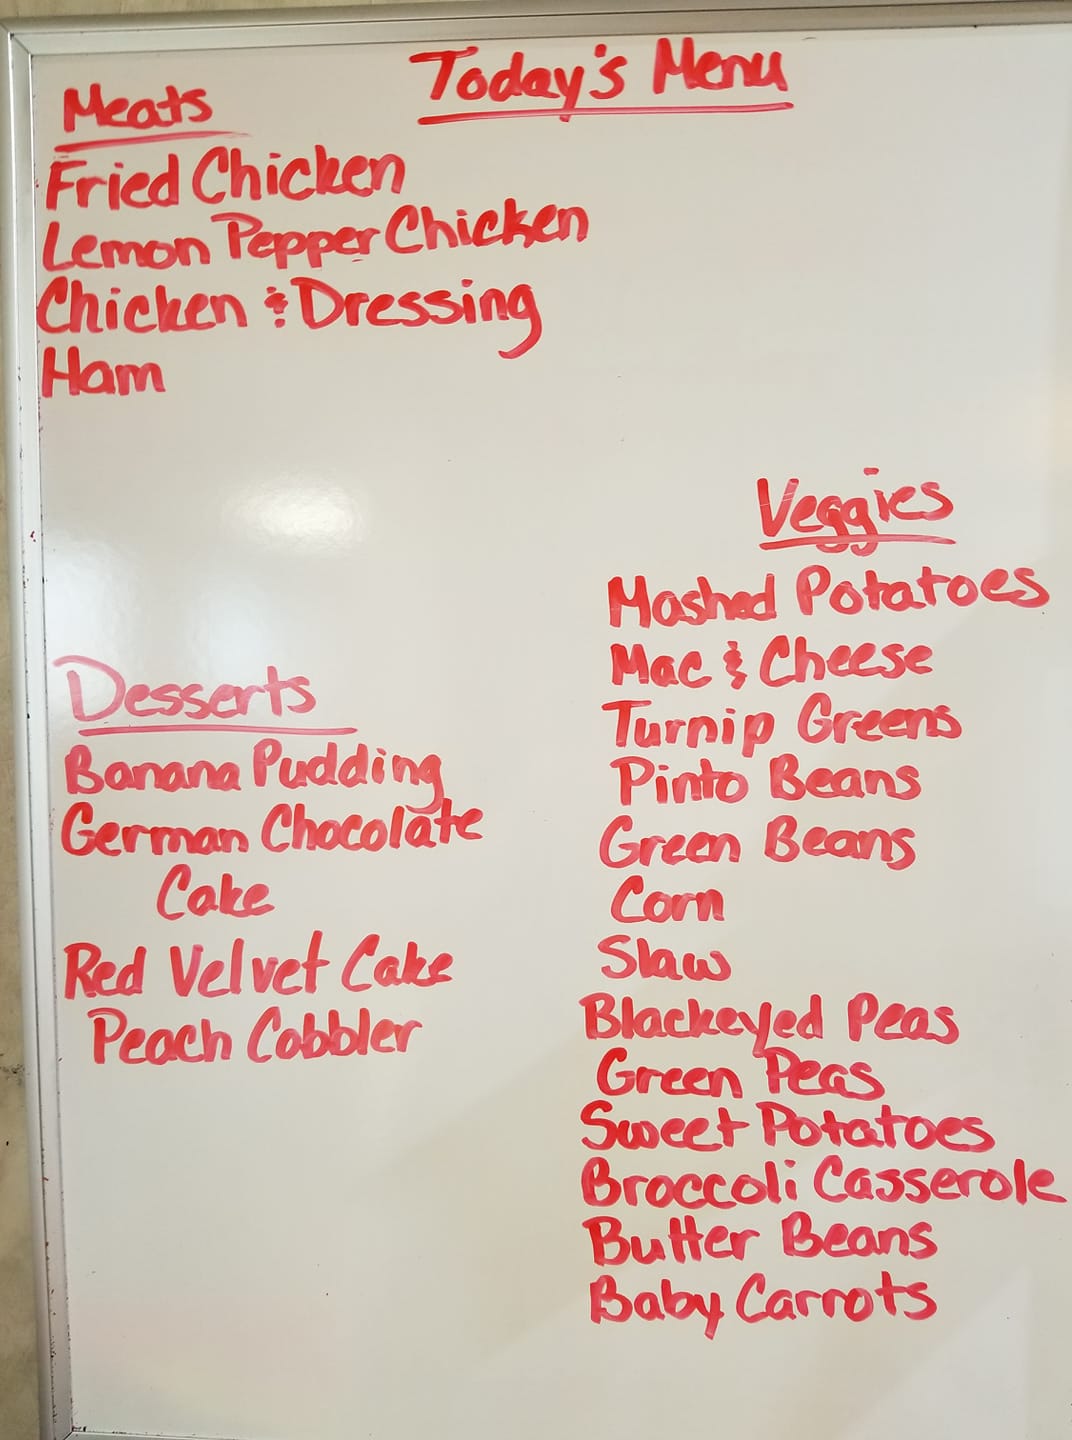 Today's Menu
Meats
Fried Chicken
Lemon Pepper Chicken
Chicken & Dressing
Ham
Desserts
Banana Pudding
German Chocolate
Cake
Red Velvet Cake
Peach Cobbler
Veggies
Mashed Potatoes
Mac & Cheese
Turnip Greens
Pinto Beans
Green Beans
Corn
Slaw
Blackeyed Peas
Green Peas
Sweet Potatoes
Broccoli Casserole
Butter Beans
Baby Carrots